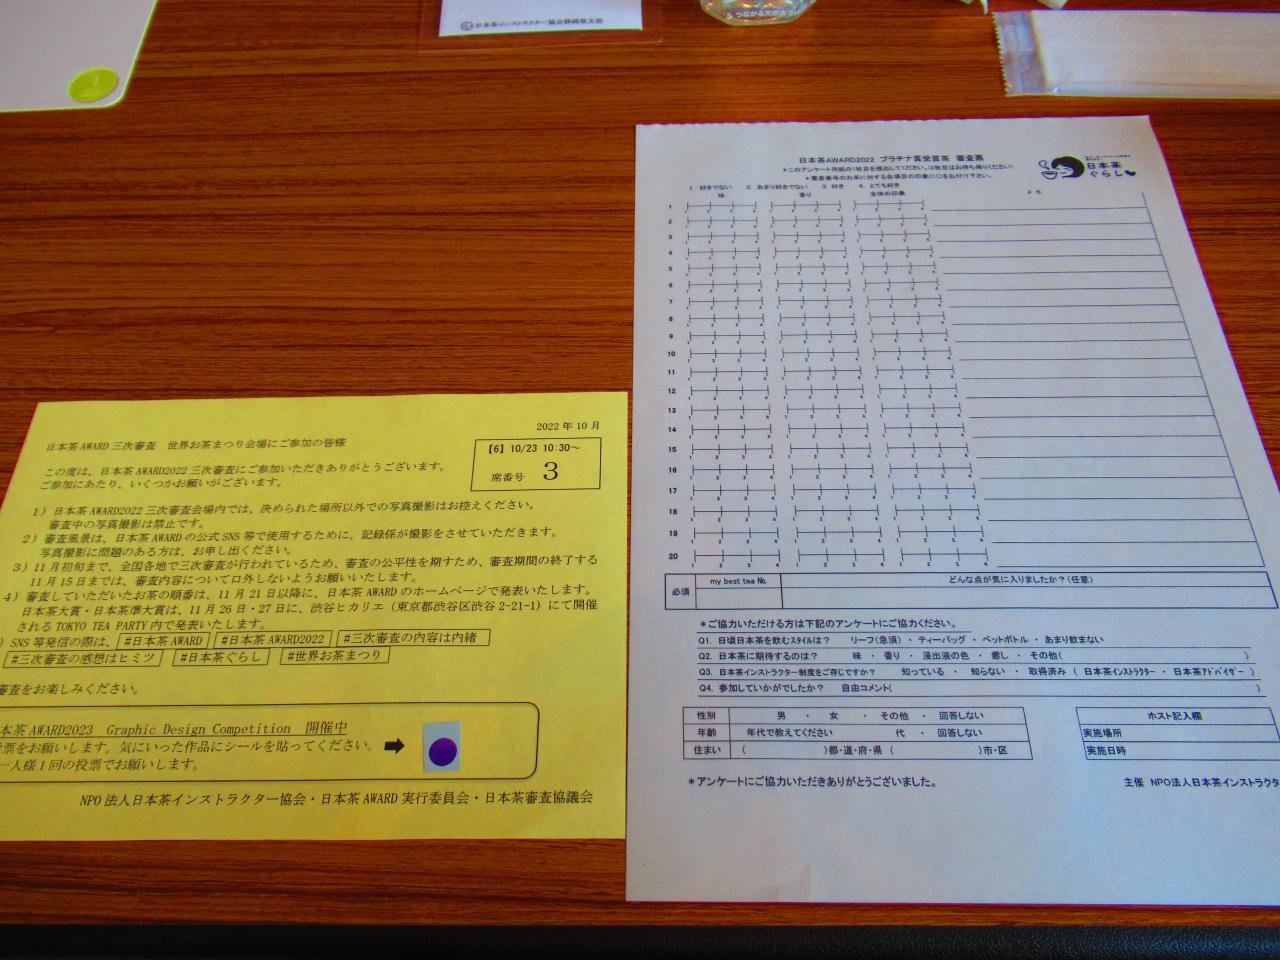 日本茶インストラクター協会静岡県支部
2022年10月
日本茶AWARD三次審査　世界お茶まつり会場にご参加の皆様
【6】10/23 10:30～
席番号　3
この度は、日本茶AWARD2022三次審査にご参加いただきありがとうございます。
ご参加にあたり、いくつかお願いがございます。
1）日本茶AWARD2022三次審査会場内では、決められた場所以外での写真撮影はお控えください。
審査中の写真撮影は禁止です。
2）審査風景は、日本茶AWARDの公式SNS等で使用するために、記録係が撮影をさせていただきます。
写真撮影に問題のある方は、お申し出ください。
3）11月初旬まで、全国各地で三次審査が行われているため、審査の公平性を期すため、審査期間の終了する
11月15日までは、審査内容について口外しないようお願いいたします。
4）審査していただいたお茶の順番は、11月21日以降に、日本茶AWARDのホームページで発表いたします。
日本茶大賞・日本茶準大賞は、11月26日・27日に、渋谷ヒカリエ（東京都渋谷区渋谷2-21-1）にて開催
されるTOKYO TEA PARTY内で発表いたします。
）SNS等発信の際は、#日本茶AWARD #日本茶AWARD2022 #三次審査の内容は内緒
#三次審査の感想はヒミツ #日本茶ぐらし #世界お茶まつり
審査をお楽しみください。
本茶AWARD2023 Graphic Design Competition　開催中
票をお願いします。気にいった作品にシールを貼ってください。
一人様1回の投票でお願いします。
NPO法人日本茶インストラクター協会・日本茶AWARD実行委員会・日本茶審査協議会
日本茶AWARD2022 プラチナ賞受賞茶 審査票
*このアンケート用紙の1枚目を提出してください。(2枚目はお持ち帰りください)
*審査番号のお茶に対する各項目の印象に○をお付け下さい。
日本茶
ぐらし
1. 好きでない　2. あまり好きでない　3 好き　4. とても好き
味　香り　全体の印象　メモ
1
1 2 3 4 1 2 3 4 1 2 3 4
2
1 2 3 4 1 2 3 4 1 2 3 4
3
1 2 3 4 1 2 3 4 1 2 3 4
4
1 2 3 4 1 2 3 4 1 2 3 4
5
1 2 3 4 1 2 3 4 1 2 3 4
6
1 2 3 4 1 2 3 4 1 2 3 4
7
1 2 3 4 1 2 3 4 1 2 3 4
8
1 2 3 4 1 2 3 4 1 2 3 4
9
1 2 3 4 1 2 3 4 1 2 3 4
10
1 2 3 4 1 2 3 4 1 2 3 4
11
1 2 3 4 1 2 3 4 1 2 3 4
12
1 2 3 4 1 2 3 4 1 2 3 4
13
1 2 3 4 1 2 3 4 1 2 3 4
14
1 2 3 4 1 2 3 4 1 2 3 4
15
1 2 3 4 1 2 3 4 1 2 3 4
16
1 2 3 4 1 2 3 4 1 2 3 4
17
1 2 3 4 1 2 3 4 1 2 3 4
18
1 2 3 4 1 2 3 4 1 2 3 4
19
1 2 3 4 1 2 3 4 1 2 3 4
20
1 2 3 4 1 2 3 4 1 2 3 4
必須　my best tea No.　どんな点が気に入りましたか？(任意)
*ご協力いただける方は下記のアンケートにご協力ください。
Q1. 日頃日本茶を飲むスタイルは？　リーフ(急須)　・　ティーバッグ　・　ペットボトル　・　あまり飲まない
Q2. 日本茶に期待するのは？　味　・　香り　・　浸出液の色　・　癒し　・　その他(　)
Q3. 日本茶インストラクター制度をご存じですか？　知っている　・　知らない　・　取得済み（ 日本茶インストラクター ・ 日本茶アドバイザー ）
Q4. 参加していかがでしたか？　自由コメント(　)
性別　男　・　女　・　その他　・　回答しない
年齢　年代で教えてください　代　・　回答しない
住まい　(　)都・道・府・県　(　)市・区
ホスト記入欄
実施場所
実施日時
*アンケートにご協力いただきありがとうございました。
主催　NPO法人日本茶インストラクタ